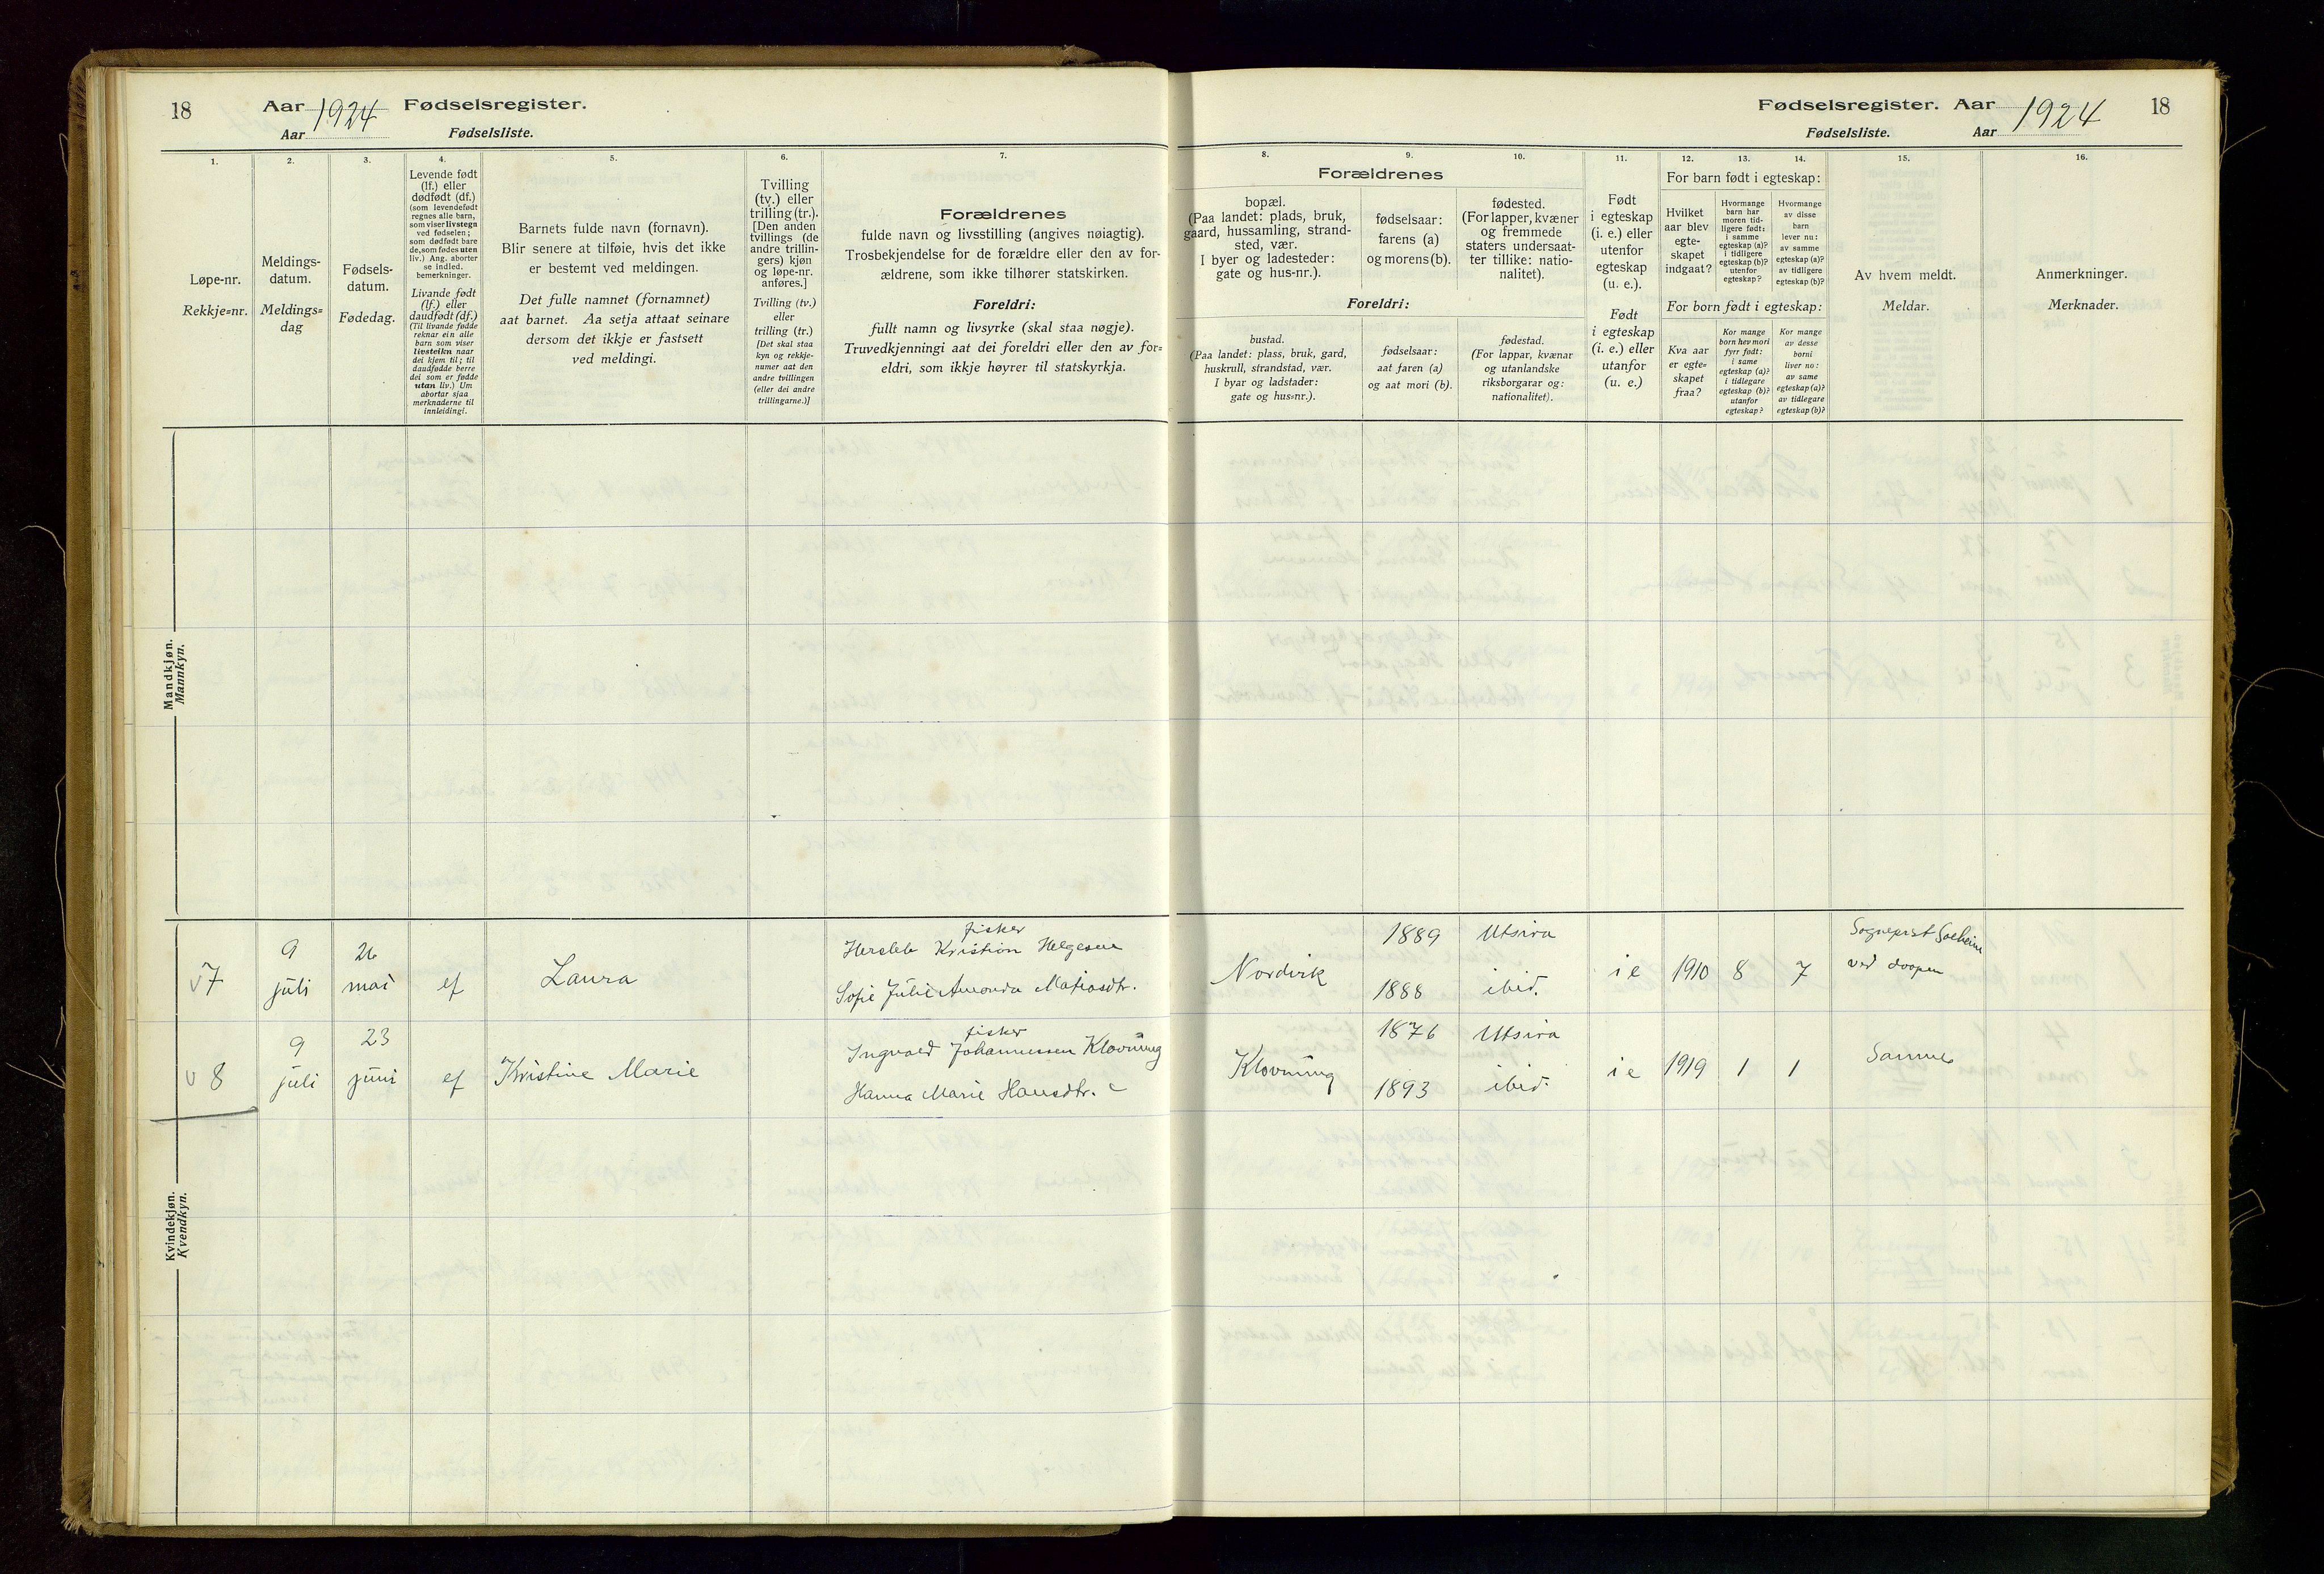 18 Aar 1924 Fødselsregister.
Aar Fødselsliste.
Fødselsregister. Aar 1924 18
Fødselsliste. Aar
1.
Løpe-nr.
Rekkje=nr.
2.
Meldings-
datum.
Meldings=
dag
3.
Fødsels-
datum.
Fødedag.
4.
Levende født
(lf.) eller
dødfødt (df.)
(som levendefødt
regnes alle barn,
som viser livstegn
ved fødselen;
som dødfødt bare
de, som fødes uten
liv.) Ang. aborter
se indled.
bemerkninger.
Livande født
(lf.) eller
daudfødt (df.)
(Til livande fødde
reknar ein alle
barn som viser
livsteikn naar
dei kjem til; til
daudfødde berre
dei som er fødde
utan liv.) Um
abortar sjaa
merknaderne til
innleidingi.
5.
Barnets fulde navn (fornavn).
Blir senere at tilføie, hvis det ikke
er bestemt ved meldingen.
Det fulle namnet (fornamnet)
aat barnet. Aa setja attaat seinare
dersom det ikkje er fastsett
ved meldingi.
6.
Tvilling
(tv.) eller
trilling (tr.).
[Den anden
tvillings (de
andre trillin-
gers) kjøn
og løpe-nr.
anføres.]
Tvilling (tv.)
eller
trilling (tr.)
[Det skal staa
kyn og rekkje-
numer aat den
andre tvillingen
(eller dei andre
trillingarne.)]
7.
Forældrenes
fulde navn og livsstilling (angives nøiagtig).
Trosbekjendelse for de forældre eller den av for-
ældrene, som ikke tilhører statskirken.
Foreldri:
fullt namn og livsyrke (skal staa nøgje).
Truvedkjenningi aat dei foreldri eller den av for=
eldri, som ikkje høyrer til statskyrkja.
Forældrenes
8.
bopæl.
(Paa landet: plads, bruk,
gaard, hussamling, strand-
sted, vær.
I byer og ladesteder:
gate og hus-nr.).
9.
fødselsaar:
farens (a)
og morens (b).
10.
fødested.
(For lapper, kvæner
og fremmede
staters undersaat-
ter tillike: natio-
nalitet).
Foreldri:
bustad.
(Paa landet: plass, bruk, gard,
huskrull, strandstad, vær.
I byar og ladstader:
gate og hus=nr.).
fødselsaar:
aat faren (a)
og aat mori (b).
fødestad.
(For lappar, kvænar
og utanlandske
riksborgarar og:
nationalitet).
11.
Født
i egteskap
(i. e.) eller
utenfor
egteskap
(u. e.).
Født
i egteskap
(i. e.) eller
utanfor
egteskap
(u. e.)
For barn født i egteskap:
12.
Hvilket
aar blev
egte-
skapet
indgaat?
13.
Hvormange
barn har
moren tid-
ligere født:
i samme
egteskap (a)?
i tidligere
egteskap (b)?
utenfor
egteskap?
14.
Hvormange
av disse
barn
lever nu:
av samme
egteskap (a)?
av tidligere
egteskap (b)?
For born født i egteskap:
Kva aar
er egte-
skapet
fraa?
Kor mange
born hev mori
fyrr født:
i same
egteskap (a)?
i tidlegare
egteskap (b)?
utanfor
egteskap?
Kor mange
av desse
borni
liver no:
av same
egteskap (a)?
av tidlegare
egteskap (b)?
15.
Av hvem meldt.
Meldar.
16.
Anmerkninger.
Merknader.
Mandkjøn.
Mannkyn.
7 9 juli 26 mai ef Laura
fisker
Hersleb Kristian Helgesen
Sofie Julie Amanda Matiasdtr.
Nordvik 1889 Utsira
1888 ibid.
i e 1910 8 7
Sogneprst Solheim
ved doopen
8 9 juli 23 juni ef Kristine Marie
fisker
Ingvald Johannessen Klovning
Hanna Marie Hansdtr.
Klovning 1876 Utsira
1893 ibid.
i e 1919 1 1 Samme
Kvindekjøn.
Kvendkyn.